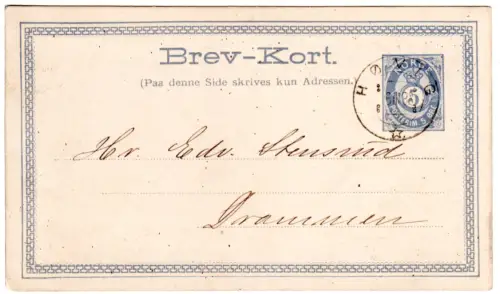 Brev-Kort.
(Paa denne Side skrives kun Adressen.)
NORGE
5
Hr Edv. Stensrud
Drammen